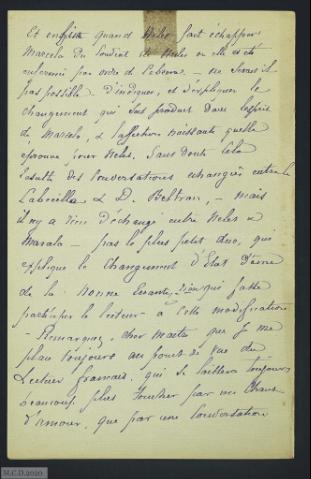 Et enfin quand Meles fait échapper
Marcela du Couvent où elle a été
enfermée par ordre de — ne serait-il
pas possible d'indiquer, et d'expliquer le
changement qui s'est produit dans l'esprit
de Marcela, & l'affection naissante qu'elle
éprouve pour Meles. Sans doute cela
résulte des Conversations échangées entre la
& D. Beltran, — mais
il n'y a rien d'échangé entre Meles &
Marcela — pas le plus petit duo, qui
explique le Changement d'État d'âme
de la Nonne rien qui fasse
participer le lecteur à cette modification
— Remarquez, cher Maître que je me
place toujours au point de vue du
Lecteur français, qui se laissera toujours
beaucoup plus toucher par un Chant
d'amour, que par une Conversation
M.C.D. 2020